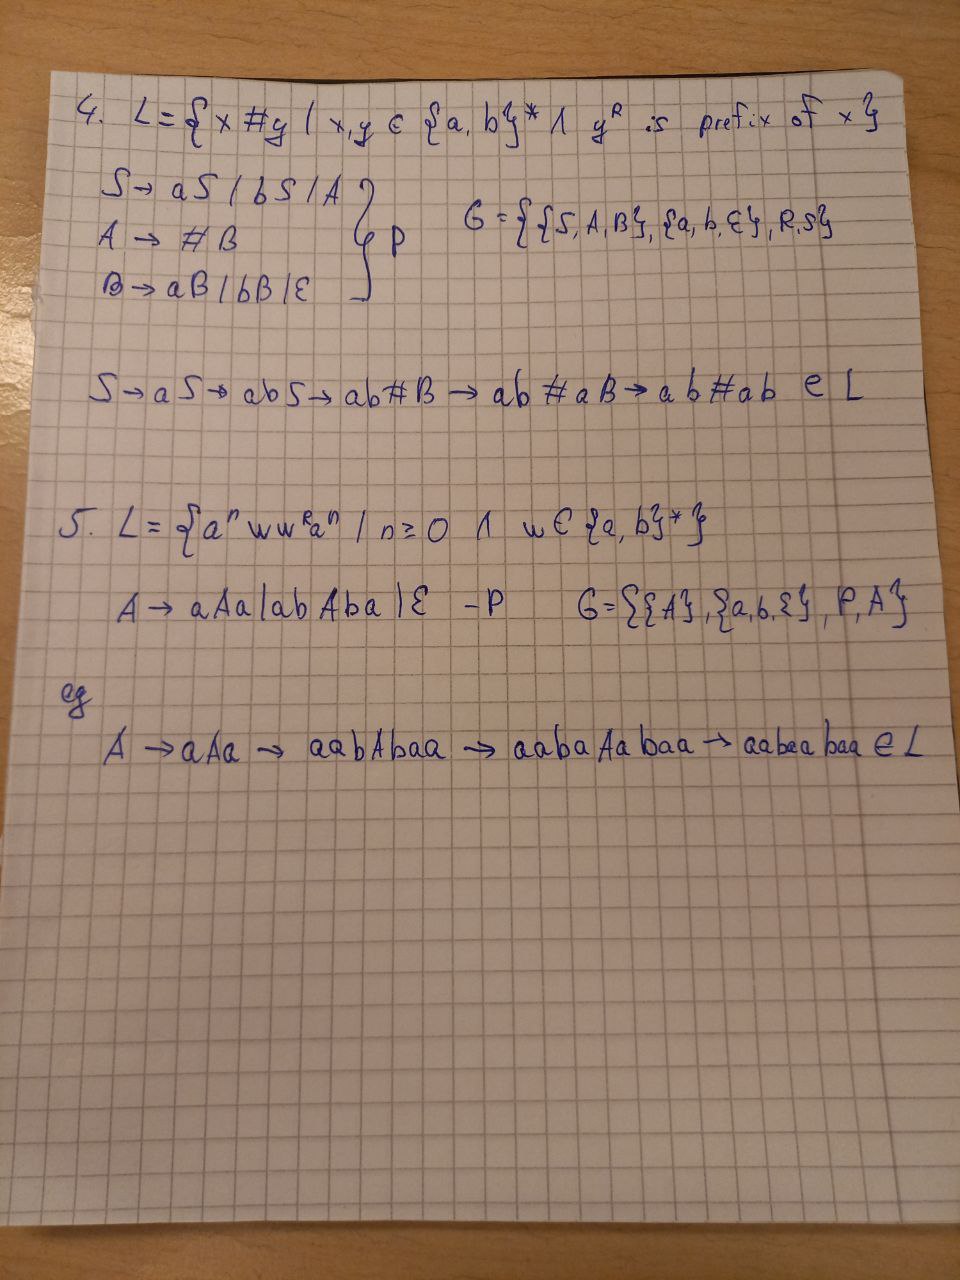 4. L = { x # y | x, y ∈ {a, b}* ∧ y^R is prefix of x }
S → aS | bS | A
A → # B } P G = { {S, A, B}, {a, b, ε}, R, S }
B → aB | bB | ε
S → aS → abS → ab#B → ab#aB → ab#ab ∈ L
5. L = { a^n w w^R a^n | n ≥ 0 ∧ w ∈ {a, b}* }
A → aAa | abAba | ε - P G = { {A}, {a, b, ε}, P, A }
eg
A → aAa → aabAbaa → aabaAabaa → aabaabaa ∈ L